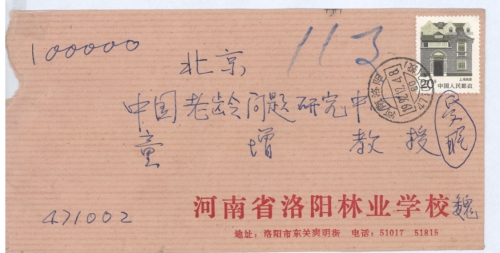 100000
113
北京
20
中国人民邮政
中国老龄问题研究中
童增教授
河南省洛阳林业学校 魏
471002
地址:洛阳市东关爽明街 电话:51017 51815